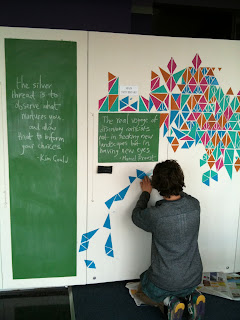 the silver
thread is to
observe what
nurtures you
and allow
that to inform
your choices
- Kim Gould
The real voyage of
discovery consists
not in seeking new
landscapes but in
having new eyes
- Marcel Proust